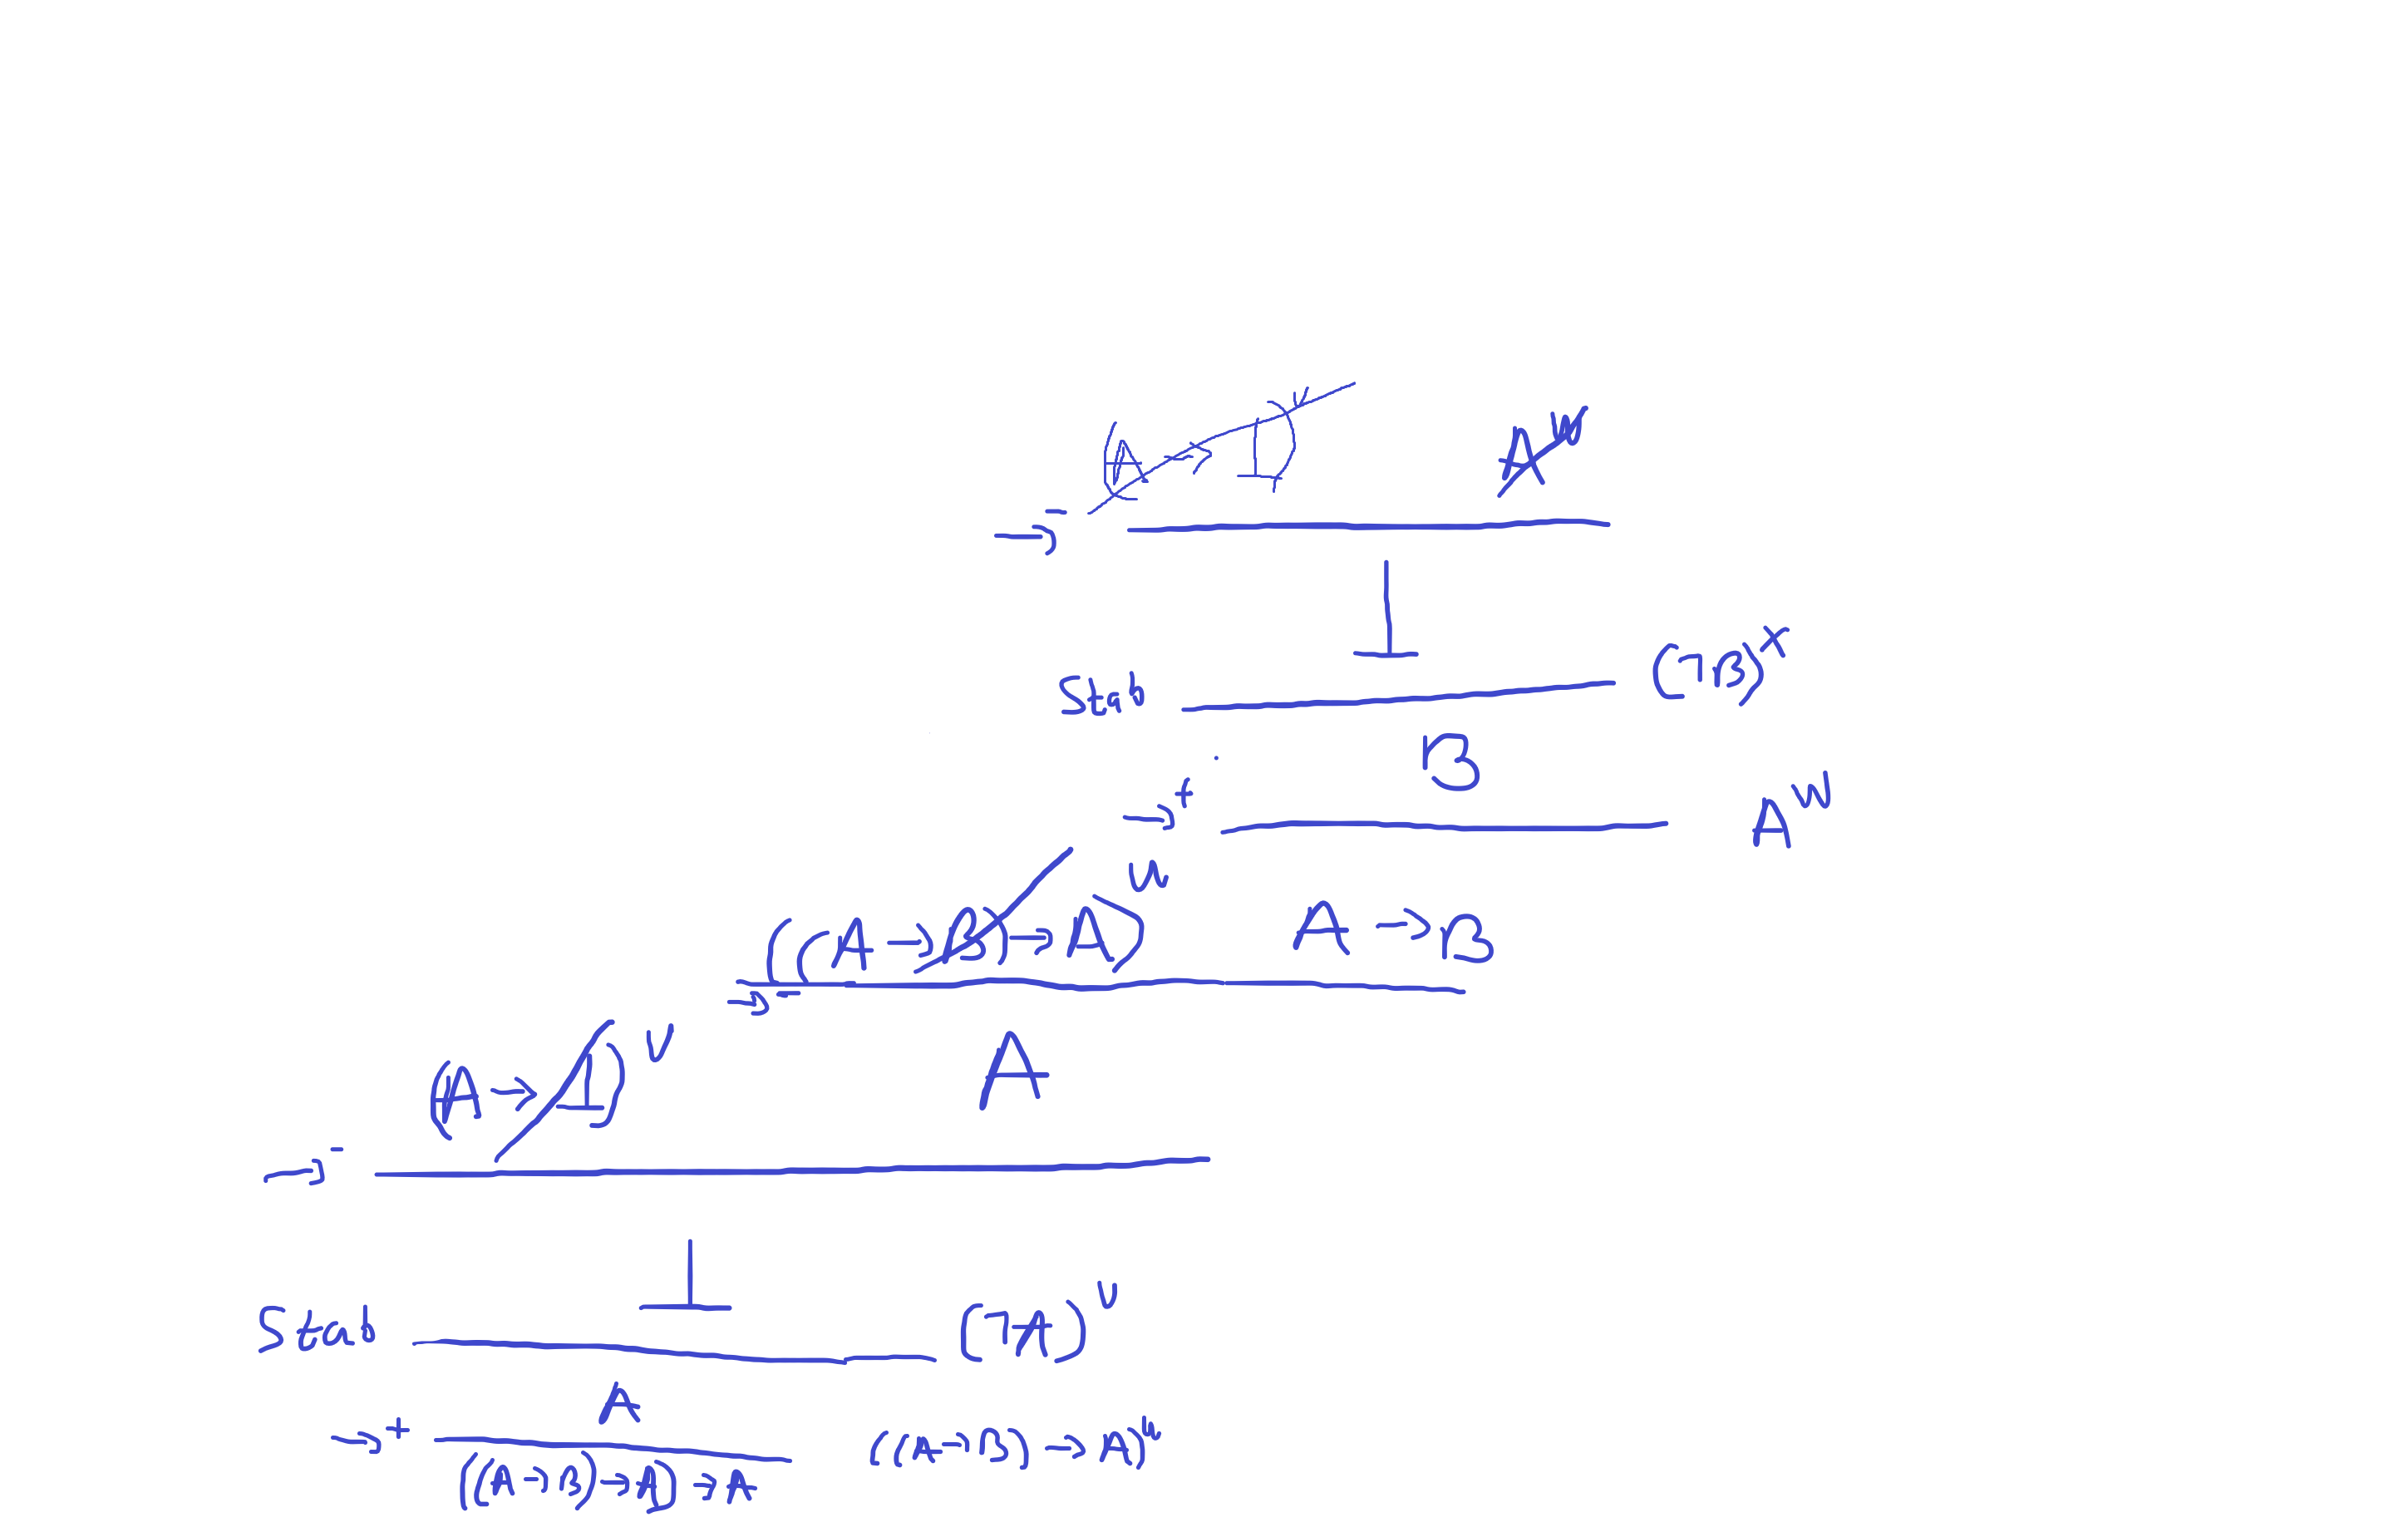 (A → ⊥)^v A^w
→^-
⊥
Stab (¬B)^x
B
→^+ A^w
((A → B) → A)^u A → B
→^-
(A → ⊥)^v A
→^-
⊥
Stab (¬A)^v
A
→^+ ((A → B) → A)^u
((A → B) → A) → A